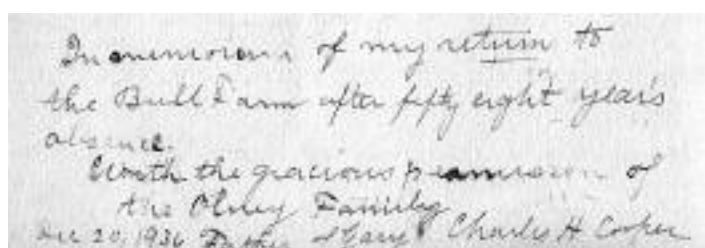 In memoriam of my return to
the Bull Farm after fifty eight year's
absence.
With the gracious permission of
the Olney Family
Dec 20, 1936 Father of Gary Charles H Cooper